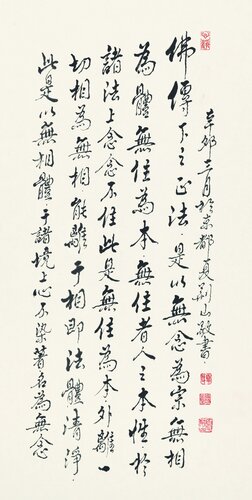 佛傳下之正法是以無念為宗無相
為體無住為本無住者人之本性於
諸法上念念不住此是無住為本外離一
切相為無相能離于相即法體清淨
此是以無相體于諸境上心不染著名為無念
辛卯三月於京都夏荊山敬書